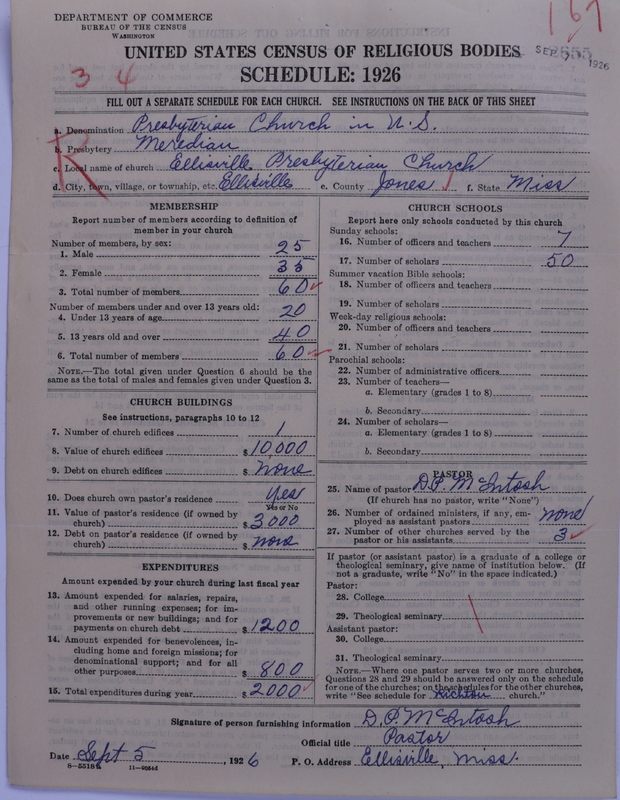 DEPARTMENT OF COMMERCE
BUREAU OF THE CENSUS
WASHINGTON
167
UNITED STATES CENSUS OF RELIGIOUS BODIES
SEP 1926
555
SCHEDULE: 1926
3 4
FILL OUT A SEPARATE SCHEDULE FOR EACH CHURCH. SEE INSTRUCTIONS ON THE BACK OF THIS SHEET
a. Denomination Presbyterian Church in U.S.
b. Presbytery Meredian
c. Local name of church Ellisville Presbyterian Church
d. City, town, village, or township, etc. Ellisville e. County Jones f. State Miss
MEMBERSHIP
Report number of members according to definition of
member in your church
Number of members, by sex:
1. Male 25
2. Female 35
3. Total number of members 60
Number of members under and over 13 years old:
4. Under 13 years of age 20
5. 13 years old and over 40
6. Total number of members 60
NOTE.—The total given under Question 6 should be the
same as the total of males and females given under Question 3.
CHURCH BUILDINGS
See instructions, paragraphs 10 to 12
7. Number of church edifices 1
8. Value of church edifices $ 10,000
9. Debt on church edifices $ none
10. Does church own pastor's residence yes
Yes or No
11. Value of pastor's residence (if owned by
church) $ 3000
12. Debt on pastor's residence (if owned by
church) $ none
EXPENDITURES
Amount expended by your church during last fiscal year
13. Amount expended for salaries, repairs,
and other running expenses; for im-
provements or new buildings; and for
payments on church debt $ 1200
14. Amount expended for benevolences, in-
cluding home and foreign missions; for
denominational support; and for all
other purposes $ 800
15. Total expenditures during year $ 2000
CHURCH SCHOOLS
Report here only schools conducted by this church
Sunday schools:
16. Number of officers and teachers 7
17. Number of scholars 50
Summer vacation Bible schools:
18. Number of officers and teachers
19. Number of scholars
Week-day religious schools:
20. Number of officers and teachers
21. Number of scholars
Parochial schools:
22. Number of administrative officers
23. Number of teachers—
a. Elementary (grades 1 to 8)
b. Secondary
24. Number of scholars—
a. Elementary (grades 1 to 8)
b. Secondary
PASTOR
25. Name of pastor D.P. McIntosh
(If church has no pastor, write "None")
26. Number of ordained ministers, if any, em-
ployed as assistant pastors none
27. Number of other churches served by the
pastor or his assistants 3
If pastor (or assistant pastor) is a graduate of a college or
theological seminary, give name of institution below. (If
not a graduate, write "No" in the space indicated.)
Pastor:
28. College
29. Theological seminary
Assistant pastor:
30. College
31. Theological seminary
NOTE.—Where one pastor serves two or more churches,
Questions 28 and 29 should be answered only on the schedule
for one of the churches; on the schedules for the other churches,
write "See schedule for Richton church."
Signature of person furnishing information D.P. McIntosh
Official title Pastor
Date Sept 5, 1926 P. O. Address Ellisville, Miss.